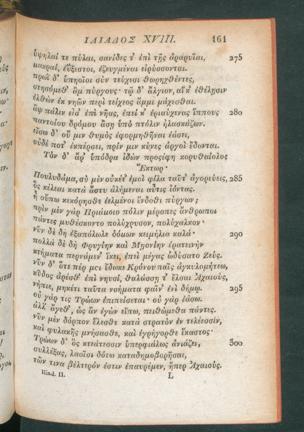 ΙΛΙΑΔΟΣ XVIII. 161
ὑψηλαί τε πύλαι, σανίδες τ' ἐπὶ τῆς ἀραρυῖαι, 275
μακραὶ, ἐΰξεστοι, ἐζευγμέναι εἰρύσσονται.
πρωῒ δ' ὑπηοῖοι σὺν τεύχεσι θωρηχθέντες,
στησόμεθ' ἂμ πύργους· τῷ δ' ἄλγιον, αἴ κ' ἐθέλησιν
ἐλθὼν ἐκ νηῶν περὶ τείχεος ἄμμι μάχεσθαι.
ἂψ πάλιν εἶσ' ἐπὶ νῆας, ἐπεί κ' ἐριαύχενας ἵππους 280
παντοίου δρόμου ἄσῃ ὑπὸ πτόλιν ἠλασκάζων.
εἴσω δ' οὔ μιν θυμὸς ἐφορμηθῆναι ἐάσει,
οὐδέ ποτ' ἐκπέρσει, πρίν μιν κύνες ἀργοὶ ἔδονται.
Τὸν δ' ἄρ' ὑπόδρα ἰδὼν προσέφη κορυθαίολος
Ἕκτωρ·
Πουλυδάμα, σὺ μὲν οὐκέτ' ἐμοὶ φίλα ταῦτ' ἀγορεύεις, 285
ὃς κέλεαι κατὰ ἄστυ ἀλήμεναι αὖτις ἰόντας.
ἦ οὔπω κεκόρησθε ἐελμένοι ἔνδοθι πύργων;
πρὶν μὲν γὰρ Πριάμοιο πόλιν μέροπες ἄνθρωποι
πάντες μυθέσκοντο πολύχρυσον, πολύχαλκον·
νῦν δὲ δὴ ἐξαπόλωλε δόμων κειμήλια καλά· 290
πολλὰ δὲ δὴ Φρυγίην καὶ Μῃονίην ἐρατεινὴν
κτήματα περνάμεν' ἵκει, ἐπεὶ μέγας ὠδύσατο Ζεύς.
νῦν δ' ὅτε πέρ μοι ἔδωκε Κρόνου παῖς ἀγκυλομήτεω,
κῦδος ἀρέσθ' ἐπὶ νηυσὶ, θαλάσσῃ τ' ἔλσαι Ἀχαιοὺς,
νήπιε, μηκέτι ταῦτα νοήματα φαῖν' ἐνὶ δήμῳ. 295
οὐ γάρ τις Τρώων ἐπιπείσεται· οὐ γὰρ ἐάσω.
ἀλλ' ἄγεθ', ὡς ἂν ἐγὼν εἴπω, πειθώμεθα πάντες.
νῦν μὲν δόρπον ἕλεσθε κατὰ στρατὸν ἐν τελέεσσιν,
καὶ φυλακῆς μνήσασθε, καὶ ἐγρήγορθε ἕκαστος·
Τρώων δ' ὃς κτεάτεσσιν ὑπερφιάλως ἀνιάζει, 300
συλλέξας, λαοῖσι δότω καταδημοβορῆσαι,
τῶν τινα βέλτερόν ἐστιν ἐπαυρέμεν, ἤπερ Ἀχαιούς.
Iliad. II. L